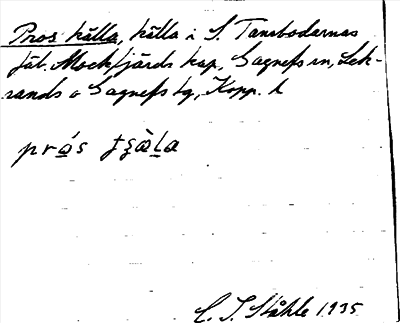 Pros källa, källa i S. Tansbodarnas
fäb. Mockfjärds kap., Gagnefs sn, Lek-
sands o Gagnefs tg, Kopp. l
C. I. Ståhle 1935